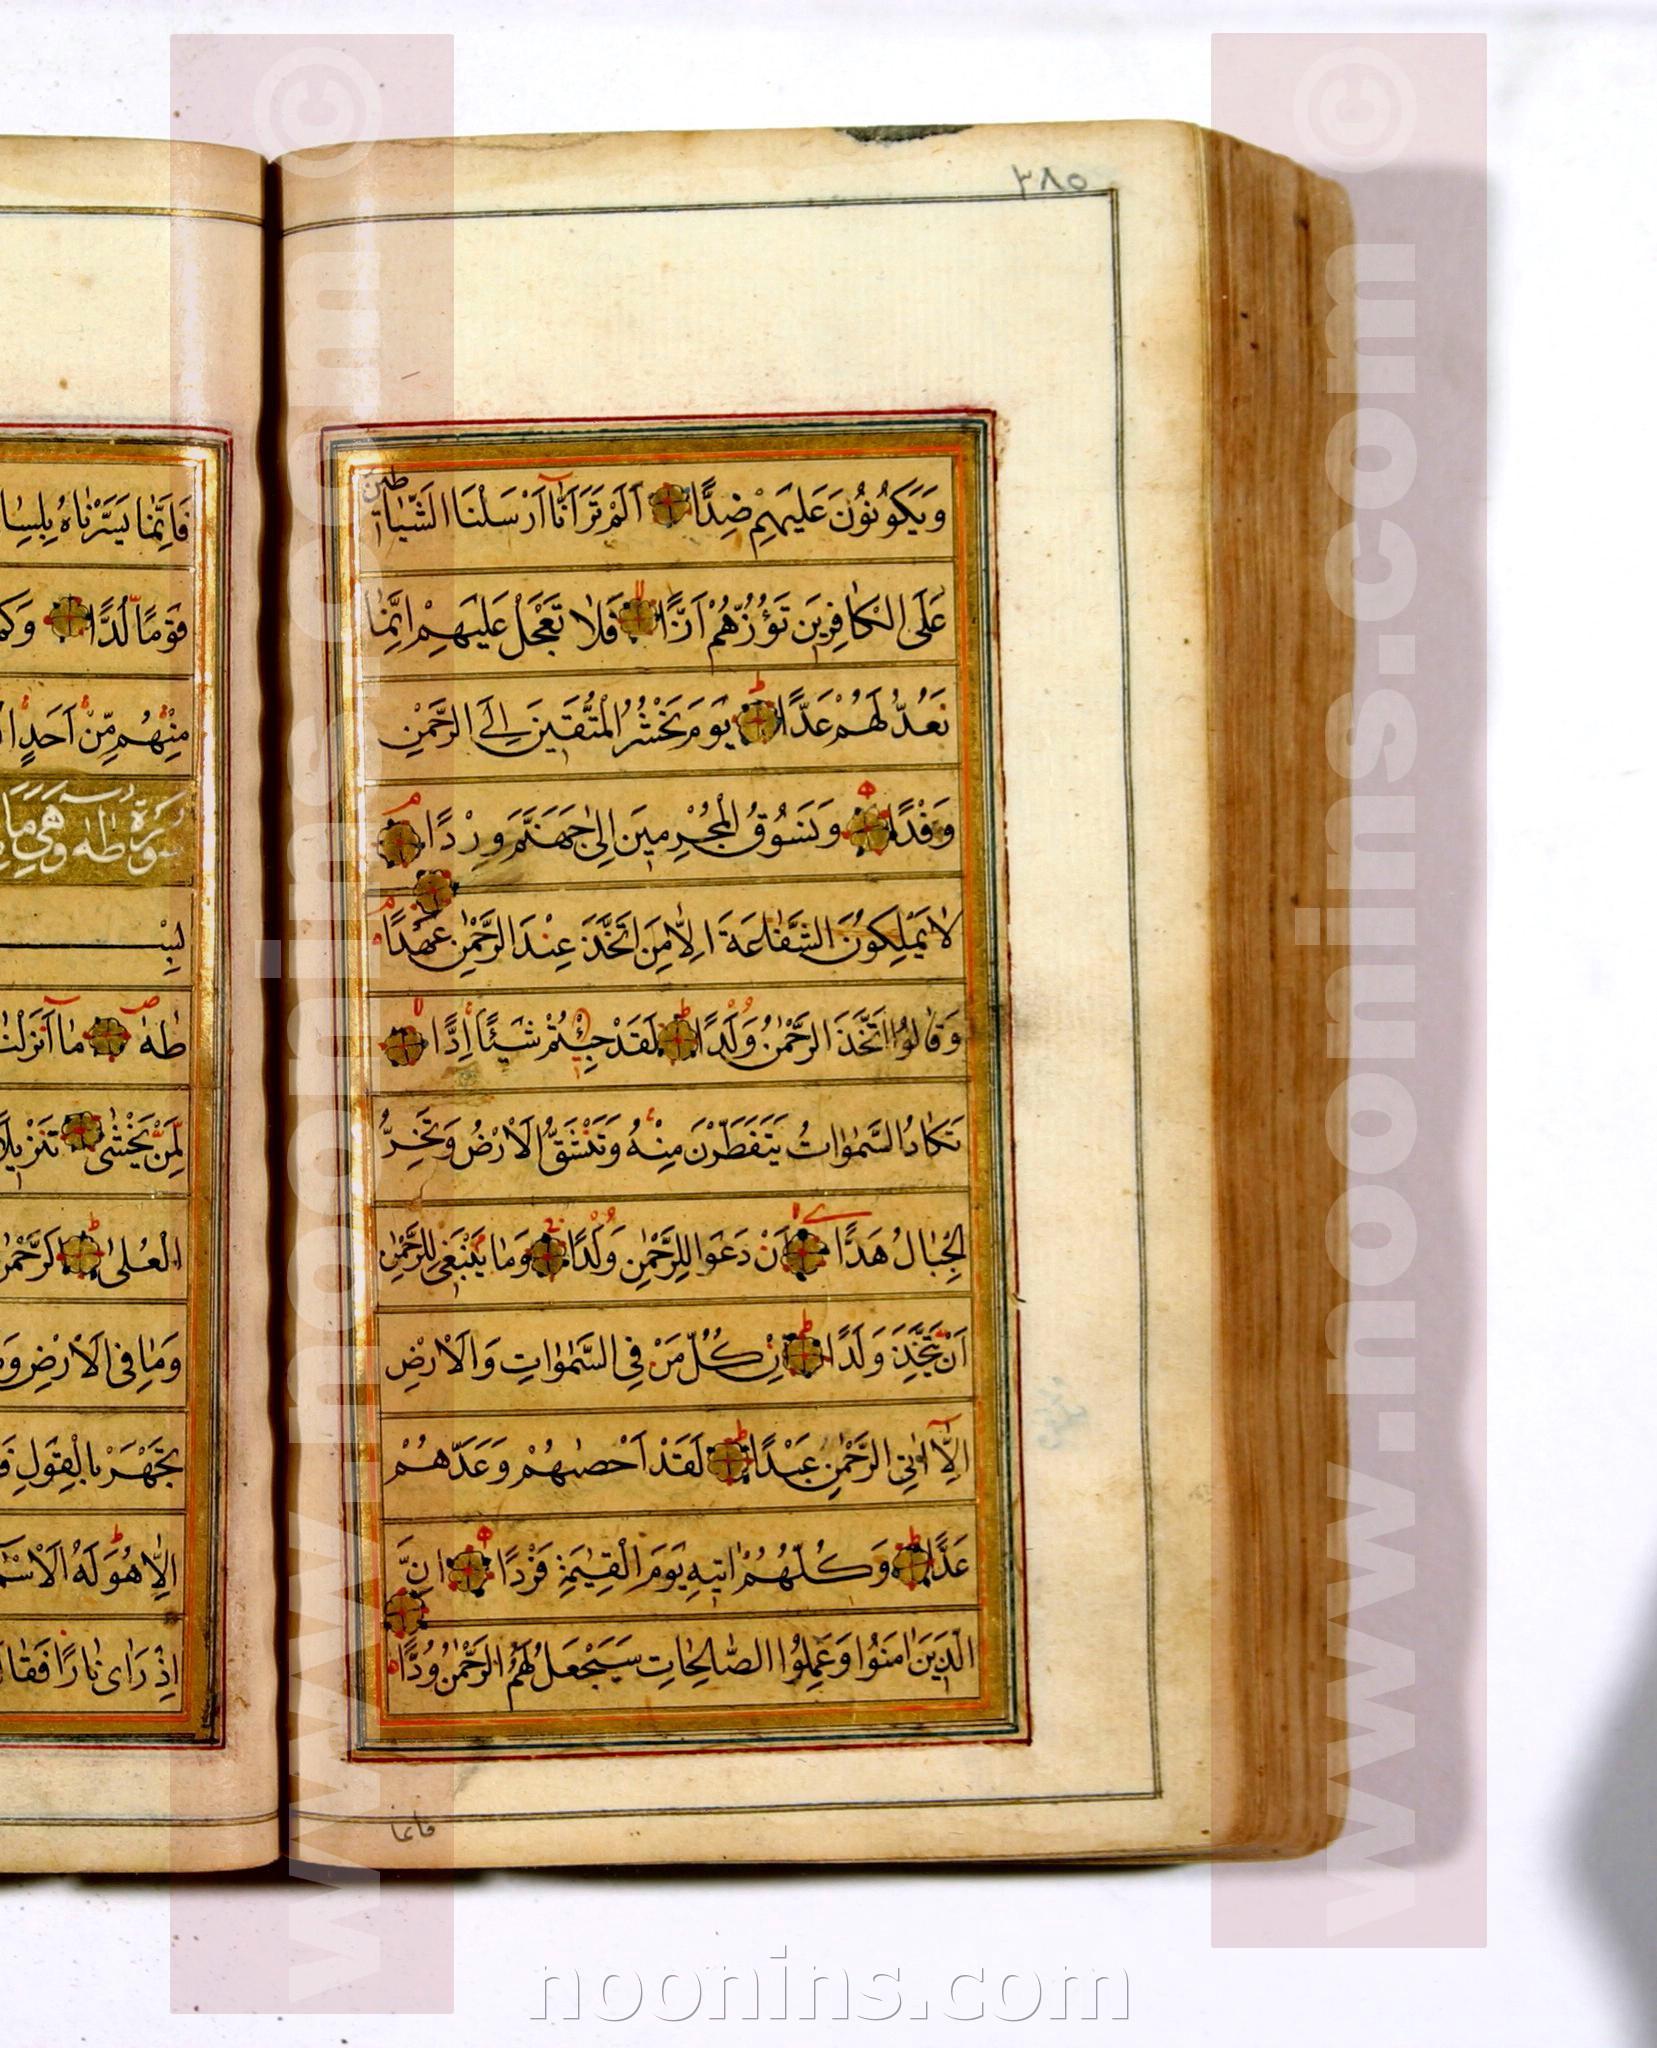 ٣٨٥
وَيَكُونُونَ عَلَيْهِمْ ضِدًّا اَلَمْ تَرَ اَنَّا اَرْسَلْنَا الشَّيَاطِينَ
عَلَى الْكَافِرِينَ تَؤُزُّهُمْ اَزًّا فَلَا تَعْجَلْ عَلَيْهِمْ اِنَّمَا
نَعُدُّ لَهُمْ عَدًّا يَوْمَ نَحْشُرُ الْمُتَّقِينَ اِلَى الرَّحْمٰنِ
وَفْدًا وَنَسُوقُ الْمُجْرِمِينَ اِلىٰ جَهَنَّمَ وِرْدًا
لَا يَمْلِكُونَ الشَّفَاعَةَ اِلَّا مَنِ اتَّخَذَ عِنْدَ الرَّحْمٰنِ عَهْدًا
وَقَالُوا اتَّخَذَ الرَّحْمٰنُ وَلَدًا لَقَدْ جِئْتُمْ شَيْئًا اِدًّا
تَكَادُ السَّمٰوَاتُ يَتَفَطَّرْنَ مِنْهُ وَتَنْشَقُّ الْاَرْضُ وَتَخِرُّ
الْجِبَالُ هَدًّا اَنْ دَعَوْا لِلرَّحْمٰنِ وَلَدًا وَمَا يَنْبَغِي لِلرَّحْمٰنِ
اَنْ يَتَّخِذَ وَلَدًا اِنْ كُلُّ مَنْ فِي السَّمٰوَاتِ وَالْاَرْضِ
اِلَّا اٰتِي الرَّحْمٰنِ عَبْدًا لَقَدْ اَحْصٰيهُمْ وَعَدَّهُمْ
عَدًّا وَكُلُّهُمْ اٰتِيهِ يَوْمَ الْقِيٰمَةِ فَرْدًا اِنَّ
الَّذِينَ اٰمَنُوا وَعَمِلُوا الصَّالِحَاتِ سَيَجْعَلُ لَهُمُ الرَّحْمٰنُ وُدًّا
فانما
فَاِنَّمَا يَسَّرْنَاهُ بِلِسَا
قَوْمًا لُدًّا وَكَمْ
مِنْهُمْ مِنْ اَحَدٍ
سورة طه وهي ما
بِسْـ
طٰهٰ مَا اَنْزَلْنَا
لِمَنْ يَخْشٰى تَنْزِيلًا
الْعُلىٰ اَلرَّحْمٰنُ
وَمَا فِي الْاَرْضِ وَ
تَجْهَرْ بِالْقَوْلِ فَ
اِلَّا هُوَ لَهُ الْاَسْمَا
اِذْ رَاٰى نَارًا فَقَالَ
www.noonins.com ©
www.noonins.com ©
noonins.com